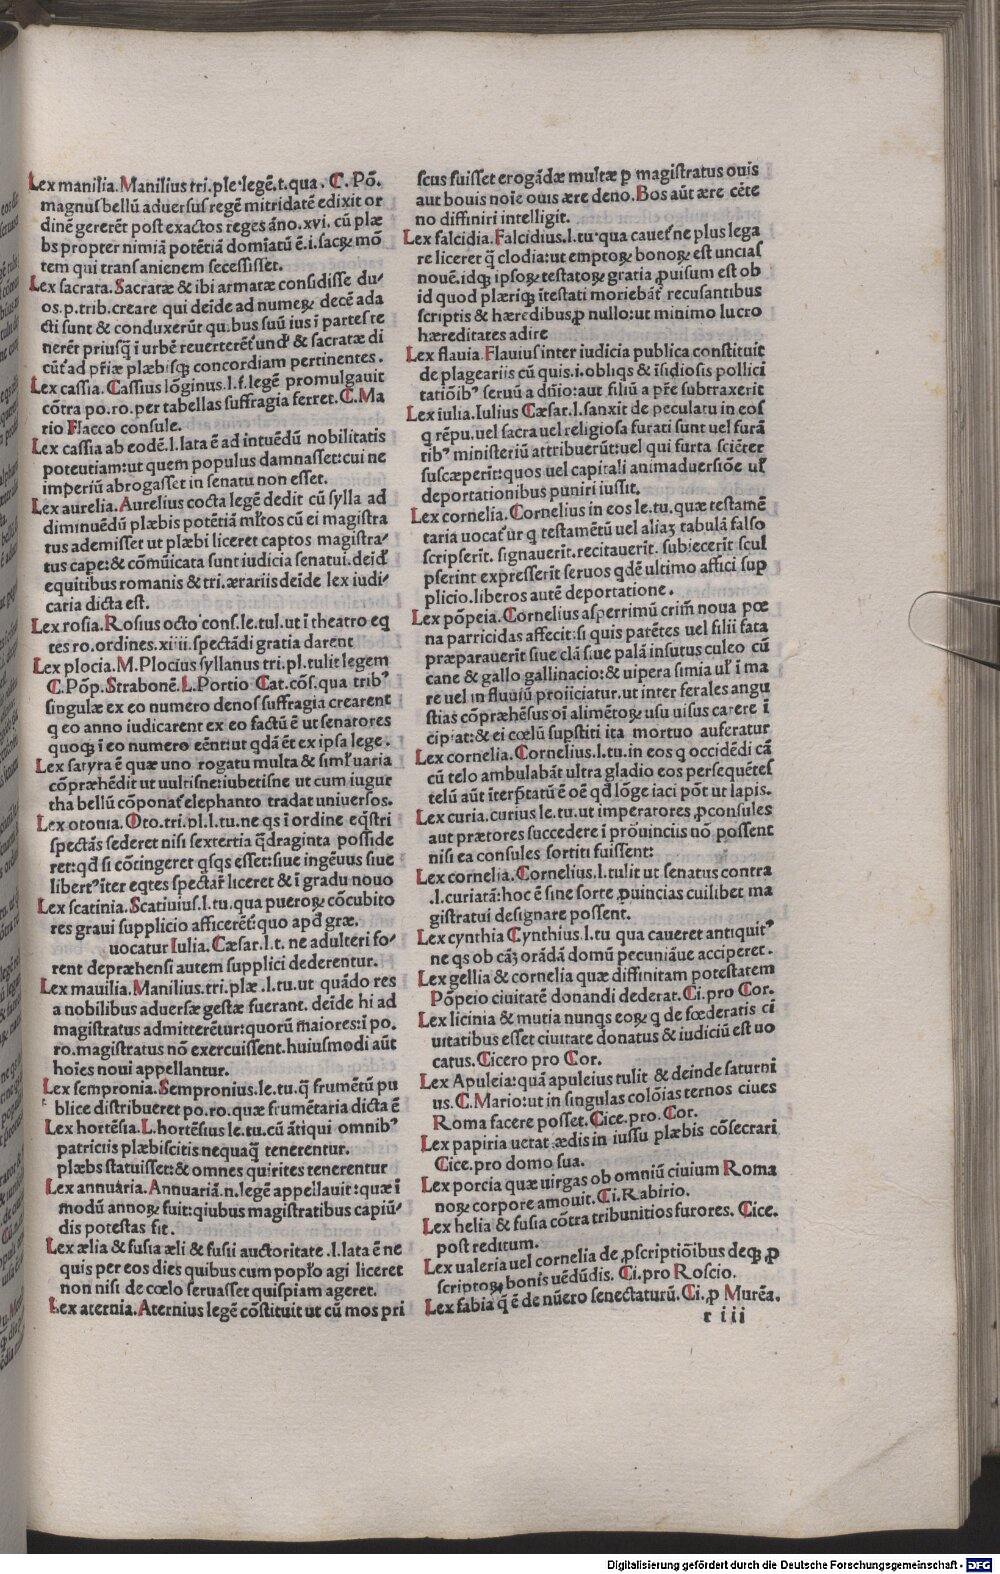 Lex manilia. Manilius tri. ple. legē. t. qua. C. Pō.
magnus bellū aduersus regē mitridatē edixit or
dinē gererēt post exactos reges āno. xvi. cū plæ
bs propter nimiā potētiā domiatū ē. i. sacꝝ mō
tem qui trans anienem secessisset.
Lex sacrata. Sacratæ & ibi armatæ considisse du
os. p. trib. creare qui deide ad numeꝝ decē ada
cti sunt & conduxerūt quibus suū ius ī partes te
nerēt priusq̄ i urbē reuerterēt und' & sacratæ di
cūt ad pr̄iæ plæbisqꝫ concordiam pertinentes.
Lex cassia. Cassius lōginus. l. f. legē promulgauit
cōtra po. ro. per tabellas suffragia ferret. C. Ma
rio Flacco consule.
Lex cassia ab eodē. l. lata ē ad intuēdū nobilitatis
poteutiam: ut quem populus damnasset: cui ne
imperiū abrogasset in senatu non esset.
Lex aurelia. Aurelius cocta legē dedit cū sylla ad
diminuēdū plæbis potētiā ml̄tos cū ei magistra
tus ademisset ut plæbi liceret captos magistra
tus cape: & cōmūicata sunt iudicia senatui. deid'
equitibus romanis & tri. ærariis deide lex iudi
caria dicta est.
Lex rosia. Rosius octo cons. le. tul. ut i theatro eq
tes ro. ordines. xiiii. spectādi gratia darent
Lex plocia. M. Plocius syllanus tri. pl. tulit legem
C. Pōp. Strabonē. L. Portio Cat. cōs. qua trib9
singulæ ex eo numero denos suffragia crearent
q eo anno iudicarent ex eo factū ē ut senatores
quoqꝫ i eo numero eēnt: ut qdā ēt ex ipsa lege.
Lex satyra ē quæ uno rogatu multa & siml' uaria
cōpræhēdit ut uultisne: iubetisne ut cum iugur
tha bellū cōponat' elephanto tradat uniuersos.
Lex otonia. Oto. tri. pl. l. tu. ne qs i ordine eqstri
spectās sederet nisi sextertia q̄draginta posside
ret: qd si cōtingeret qsqs esset: siue ingēuus siue
libert9 iter eqtes spectar̄ liceret & ī gradu nouo
Lex scatinia. Scatiuius. l. tu. qua pueroꝝ cōcubito
res graui supplicio afficerēt' quo apd græ.
uocatur Iulia. Cæsar. l. t. ne adulteri fo
rent depræhensi autem supplici dederentur.
Lex mauilia. Manilius. tri. plæ. l. tu. ut quādo res
a nobilibus aduersæ gestæ fuerant. deide hi ad
magistratus admitterētur: quorū maiores: i po.
ro. magistratus nō exercuissent. huiusmodi aūt
hoies noui appellantur.
Lex sempronia. Sempronius. le. tu. q̄ frumētū pu
blice distribueret po. ro. quæ frumētaria dicta ē
Lex hortēsia. L. hortēsius le. tu. cū ātiqui omnib9
patriciis plæbiscitis nequaq̄ tenerentur.
plæbs statuisset: & omnes quirites tenerentur
Lex annuaria. Annuariā. n. legē appellauit: quæ ī
modū annoꝝ fuit: qiubus magistratibus capiū
dis potestas fit.
Lex ælia & fusia æli & fusii auctoritate. l. lata ē ne
quis per eos dies quibus cum popl'o agi liceret
non nisi de cœlo seruasset quispiam ageret.
Lex aternia. Aternius legē cōstituit ut cū mos pri
scus fuisset erogādæ multæ ꝑ magistratus ouis
aut bouis noie ouis ære deno. Bos aūt ære cēte
no diffiniri intelligit.
Lex falcidia. Falcidius. l. tu. qua cauet' ne plus lega
re liceret q̄ clodia: ut emptoꝝ bonoꝝ est uncias
nouē. idqꝫ ipsoꝝ testatoꝝ gratia ꝓuisum est ob
id quod plæriqꝫ ītestati moriebāt' recusantibus
scriptis & hæredibus ꝓ nullo: ut minimo lucro
hæreditates adire
Lex flauia. Flauius inter iudicia publica constituit
de plageariis cū quis. i. obliqs & īsidiosis pollici
tatiōib9 seruū a dn̄io: aut filiū a pr̄e subtraxerit
Lex iulia. Iulius Cæsar. l. sanxit de peculatu in eos
q rēpu. uel sacra uel religiosa furati sunt uel furā
tib9 ministeriū attribuerūt: uel qui furta sciēter
suscæperit: quos uel capitali animaduersiōe ul'
deportationibus puniri iussit.
Lex cornelia. Cornelius in eos le. tu. quæ testamē
taria uocat' ur q testamētū uel aliaꝫ tabulā falso
scripserit. signauerit. recitauerit. subiecerit scul
pserint expresserit seruos qdē ultimo affici sup
plicio. liberos autē deportatione.
Lex pōpeia. Cornelius asperrimū crim̄ noua pœ
na parricidas affecit: si quis parētes uel filii fata
præparauerit siue clā siue palā insutus culeo cū
cane & gallo gallinacio: & uipera simia ul' ī ma
re uel in fluuiū proiiciatur. ut inter ferales angu
stias cōpræhēsus oī alimētoꝝ usu uisus carere ī
cipiat: & ei cœlū supstiti ita mortuo auferatur
Lex cornelia. Cornelius. l. tu. in eos q occidēdi cā
cū telo ambulabāt ultra gladio eos persequētes
telū aūt īterp̄tatū ē oē qd lōge iaci pōt ut lapis.
Lex curia. curius le. tu. ut imperatores ꝓconsules
aut prætores succedere i prouinciis nō possent
nisi ea consules sortiti fuissent:
Lex cornelia. Cornelius. l. tulit ut senatus contra
.l. curiatā: hoc ē sine sorte ꝓuincias cuilibet ma
gistratui designare possent.
Lex cynthia Cynthius. l. tu qua caueret antiquit9
ne qs ob cāꝫ orādā domū pecuniāue acciperet.
Lex gellia & cornelia quæ diffinitam potestatem
Pōpeio ciuitatē donandi dederat. Ci. pro Cor.
Lex licinia & mutia nunqs eoꝝ q de fœderatis ci
uitatibus esset ciuitate donatus & iudiciū est uo
catus. Cicero pro Cor.
Lex Apuleia: quā apuleius tulit & deinde saturni
us. C. Mario: ut in singulas colōias ternos ciues
Roma facere posset. Cice. pro. Cor.
Lex papiria uetat ædis in iussu plæbis cōsecrari
Cice. pro domo sua.
Lex porcia quæ uirgas ob omniū ciuium Roma
noꝝ corpore amouit. Ci. Rabirio.
Lex helia & fusia cōtra tribunitios furores. Cice.
post reditum.
Lex ualeria uel cornelia de ꝓscriptiōibus deqꝫ ꝓ
scriptoꝝ bonis uēdūdis. Ci. pro Roscio.
Lex fabia q̄ ē de nūero senectaturū. Ci. ꝓ Murēa.
r iii
Digitalisierung gefördert durch die Deutsche Forschungsgemeinschaft - DFG